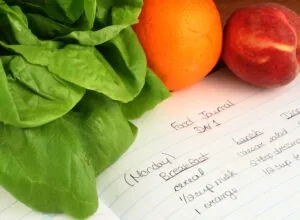 Food Journal
DAY 1
(Monday) Breakfast
cereal
1/2 cup milk
1 orange
Lunch
caesar salad
2 tbsp dressing
1/2 cup